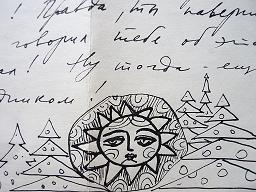 ! Правда, ты наверн
говорил тебе об это
ал! Ну тогда - ещ
дником!